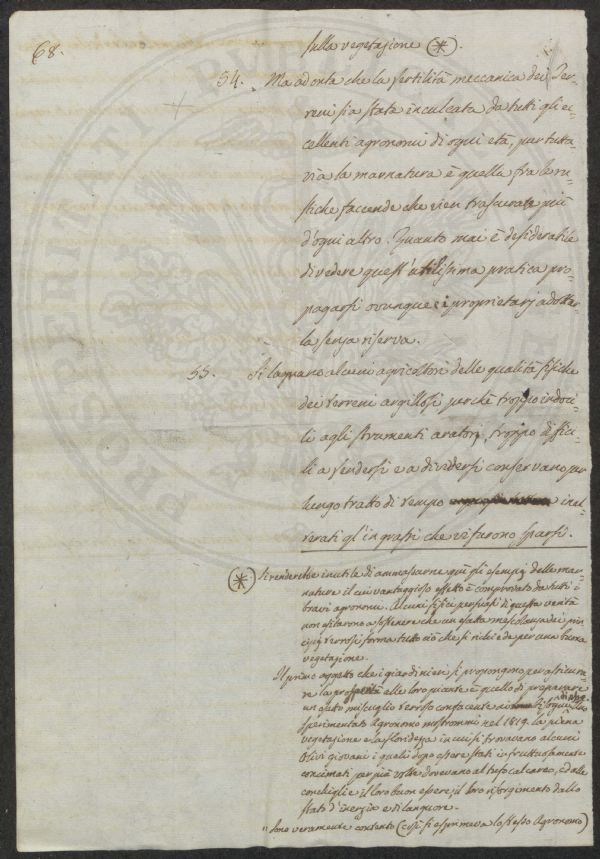 68.
sulla vegetazione (*).
54. Ma ad onta che la fertilità meccanica dei Ter-
reni sia stata inculcata da tutti gli ec-
cellenti agronomi di ogni età, pur tutta-
via la marnatura è quella fra le ru-
stiche faccende che vien trascurata più
d'ogni altro. Quanto mai è desiderabile
di vedere quest'utilissima pratica pro-
pagarsi ovunque e i proprietarj adottar-
la senza riserva.
55. Si lagnano alcuni agricoltori delle qualità fisiche
dei terreni argillosi perchè troppo indoci-
li agli strumenti aratori, troppo diffici-
li a fendersi e a dividersi conservano per
lungo tratto di tempo inal-
terati gl'ingrassi che vi farono sparsi.
(*) Si renderebbe inutile di ammassarne quì gli esempj delle mar-
nature il cui vantaggioso effetto è comprovato da tutti i
bravi agronomi. Alcuni fisici persuasi di questa verità
non esitarono a sostenere che un esatta mescolanza dei prin-
cipj terrosi forma tutto ciò che si richiede per una buona
vegetazione.
Il primo oggetto che i giardinieri si propongono per assicura-
re la prosperità alle loro piante è quello di preparare
un miscuglio terroso confacente
sperimentato Agronomo mostrommi nel 1819. la piena
vegetazione e la floridezza in cui si trovavano alcuni
Olivi giovani i quali dopo essere stati infruttuosamente
concimati per più volte dovevano al tufo calcareo, ed alle
conchiglie il loro buon essere, il loro risorgimento dallo
stato d'inerzia e di languore.
"Sono veramente contento (così si esprimeva lo stesso Agronomo)
PROSPERI ATI